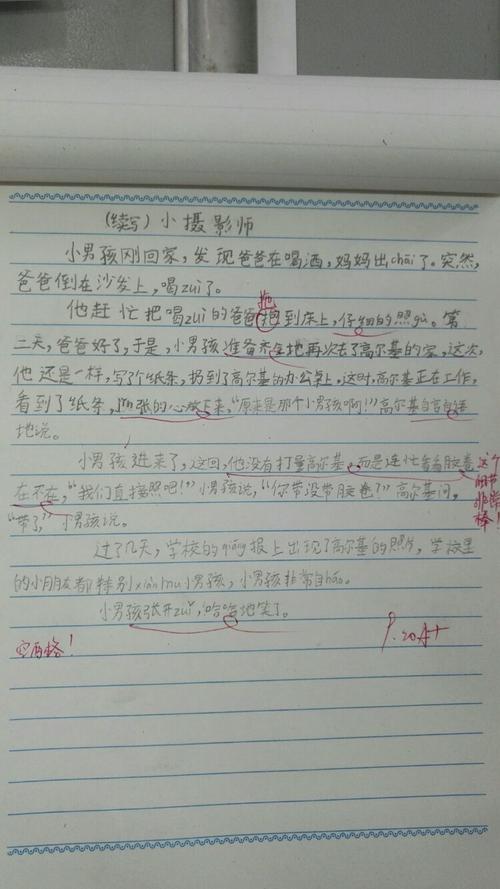 (续写)小摄影师
小男孩刚回家,发现爸爸在喝酒,妈妈出chāi了。突然,
爸爸倒在沙发上,喝zuì了。
抱
他赶忙把喝zuì的爸爸抱到床上,仔细的照gù。第
二天,爸爸好了,于是,小男孩准备齐全地再次去了高尔基的家,这次,
他还是一样,写了个纸条,扔到了高尔基的办公桌上,这时,高尔基正在工作,
看到了纸条,jǐn张的心放下来,“原来是那个小男孩啊!”高尔基自言自语
地说。
小男孩进来了,这回,他没有打量高尔基,而是连忙看看胶卷
在不在,“我们直接照吧!”小男孩说,“你带没带胶卷?”高尔基问,
“带了,”小男孩说。
这个
细节
非常
棒!
过了几天,学校的qiáng报上出现了高尔基的照片,学校里
的小朋友都特别xiànmù小男孩,小男孩非常自háo。
小男孩张开zuǐ,哈哈地笑了。
空两格!
P.20 A+